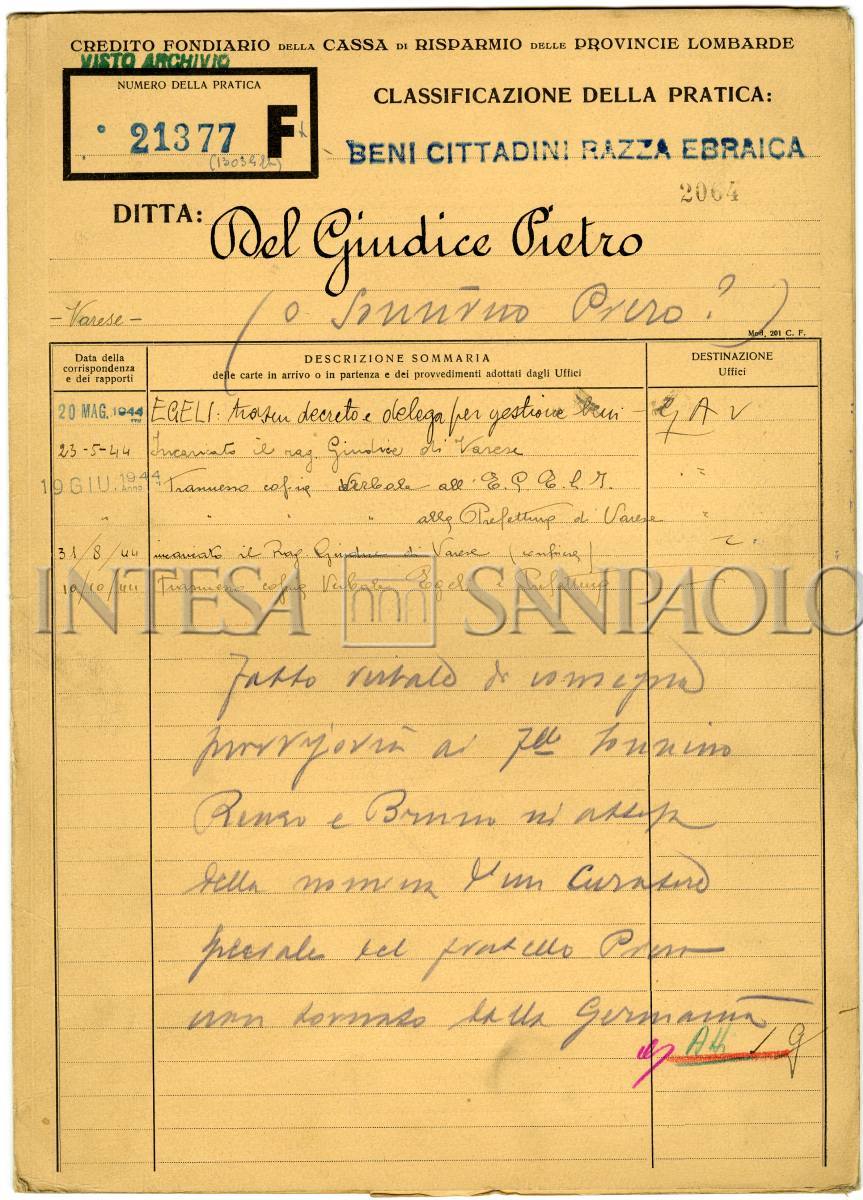 CREDITO FONDIARIO DELLA CASSA DI RISPARMIO DELLE PROVINCIE LOMBARDE
VISTO ARCHIVIO
NUMERO DELLA PRATICA
21377 F
CLASSIFICAZIONE DELLA PRATICA:
BENI CITTADINI RAZZA EBRAICA
2064
DITTA: Del Giudice Pietro
(o Sonnino Piero?)
- Varese -
Mod. 201 C. F.
Data della corrispondenza e dei rapporti
DESCRIZIONE SOMMARIA
delle carte in arrivo o in partenza e dei provvedimenti adottati dagli Uffici
DESTINAZIONE
Uffici
20 MAG. 1944 EGELI: trasm decreto e delega per gestione beni - AV
23-5-44 Incaricato il rag. Giudice di Varese
19 GIU. 1944 Trasmesso copia Verbale all' E.G.E.L.I. "
" " " " alla Prefettura di Varese "
31/8/44 incaricato il Rag Giudice di Varese
10/10/44 Trasmesso copia Verbale Egeli e Prefettura
INTESA SANPAOLO
Fatto verbale di consegna
provvisoria ai Flli Sonnino
Renzo e Bruno in attesa
della nomina d'un curatore
speciale del fratello Piero
non tornato dalla Germania